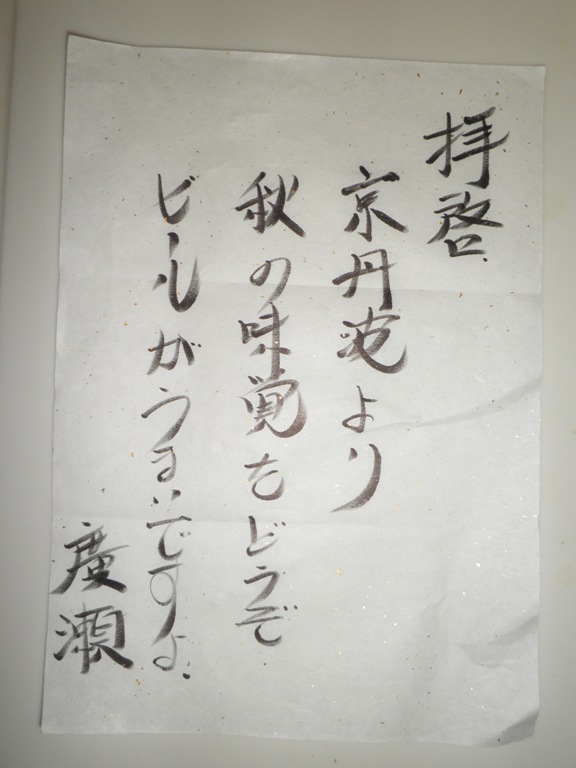 拝啓
京丹波より
秋の味覚をどうぞ
ビールがうまいですよ
廣瀬